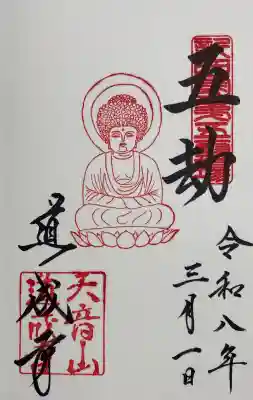 五劫
令和八年
三月一日
道成寺
天音山